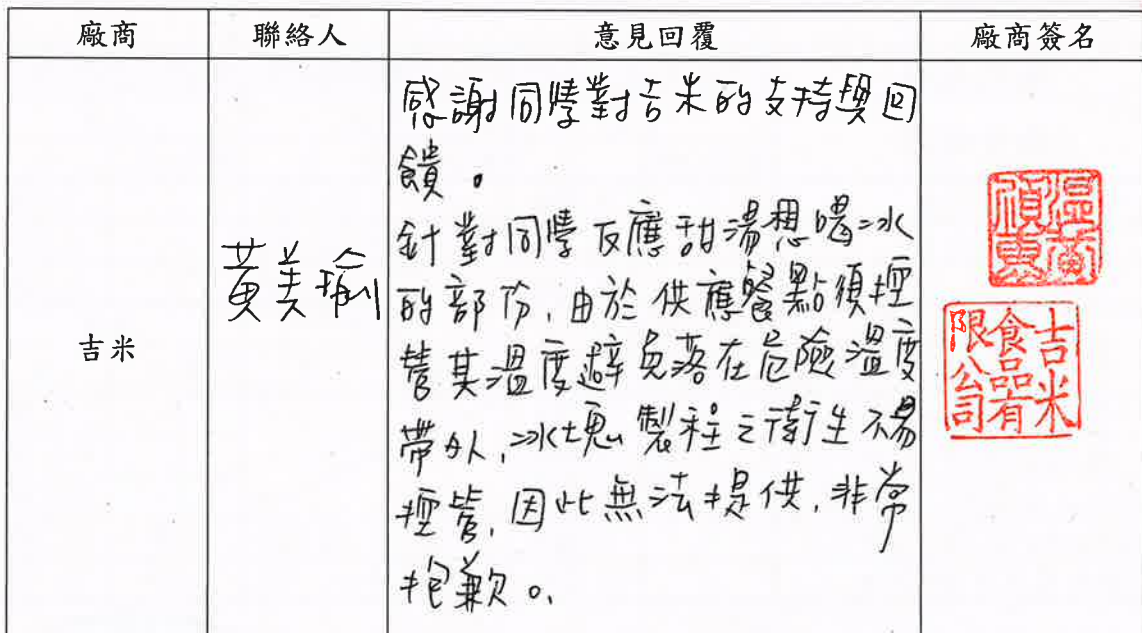 廠商 聯絡人 意見回覆 廠商簽名
吉米
黃美瑜
感謝同學對吉米的支持與回
饋。
針對同學反應甜湯想喝冰
的部份,由於供應餐點須控
管其溫度避免落在危險溫度
帶外,冰塊製程之衛生不易
控管,因此無法提供,非常
抱歉。
吉米
食品有
限公司